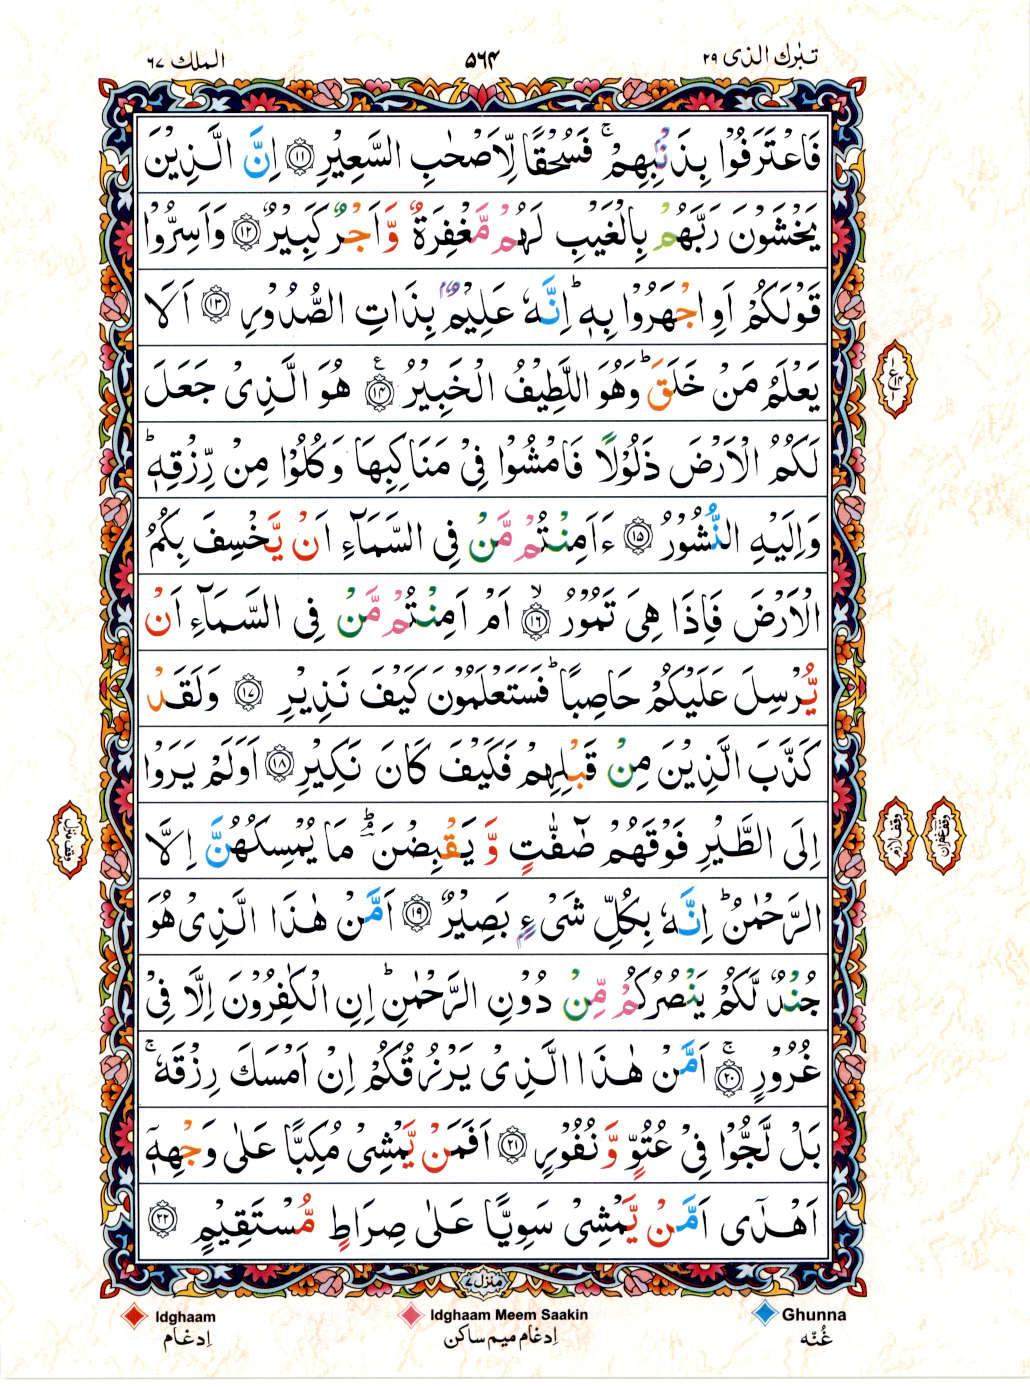 تبٰرك الذی ۲۹
۵۶۴
الملك ۶۷
فَاعْتَرَفُوْا بِذَنْۢبِهِمْ ۚ فَسُحْقًا لِّاَصْحٰبِ السَّعِيْرِ ﴿۱۱﴾ اِنَّ الَّذِيْنَ
يَخْشَوْنَ رَبَّهُمْ بِالْغَيْبِ لَهُمْ مَّغْفِرَةٌ وَّاَجْرٌ كَبِيْرٌ ﴿۱۲﴾ وَاَسِرُّوْا
قَوْلَكُمْ اَوِ اجْهَرُوْا بِهٖ ؕ اِنَّهٗ عَلِيْمٌۢ بِذَاتِ الصُّدُوْرِ ﴿۱۳﴾ اَلَا
يَعْلَمُ مَنْ خَلَقَ ؕ وَهُوَ اللَّطِيْفُ الْخَبِيْرُ ﴿۱۴﴾ هُوَ الَّذِیْ جَعَلَ
لَكُمُ الْاَرْضَ ذَلُوْلًا فَامْشُوْا فِیْ مَنَاكِبِهَا وَكُلُوْا مِنْ رِّزْقِهٖ ؕ
وَاِلَيْهِ النُّشُوْرُ ﴿۱۵﴾ ءَاَمِنْتُمْ مَّنْ فِی السَّمَآءِ اَنْ يَّخْسِفَ بِكُمُ
الْاَرْضَ فَاِذَا هِیَ تَمُوْرُ ۙ﴿۱۶﴾ اَمْ اَمِنْتُمْ مَّنْ فِی السَّمَآءِ اَنْ
يُّرْسِلَ عَلَيْكُمْ حَاصِبًا ؕ فَسَتَعْلَمُوْنَ كَيْفَ نَذِيْرِ ﴿۱۷﴾ وَلَقَدْ
كَذَّبَ الَّذِيْنَ مِنْ قَبْلِهِمْ فَكَيْفَ كَانَ نَكِيْرِ ﴿۱۸﴾ اَوَلَمْ يَرَوْا
اِلَی الطَّيْرِ فَوْقَهُمْ صٰٓفّٰتٍ وَّ يَقْبِضْنَ ؔۘؕ مَا يُمْسِكُهُنَّ اِلَّا
الرَّحْمٰنُ ؕ اِنَّهٗ بِكُلِّ شَیْءٍۭ بَصِيْرٌ ﴿۱۹﴾ اَمَّنْ هٰذَا الَّذِیْ هُوَ
جُنْدٌ لَّكُمْ يَنْصُرُكُمْ مِّنْ دُوْنِ الرَّحْمٰنِ ؕ اِنِ الْكٰفِرُوْنَ اِلَّا فِیْ
غُرُوْرٍ ۚ﴿۲۰﴾ اَمَّنْ هٰذَا الَّذِیْ يَرْزُقُكُمْ اِنْ اَمْسَكَ رِزْقَهٗ ۚ
بَلْ لَّجُّوْا فِیْ عُتُوٍّ وَّ نُفُوْرٍ ﴿۲۱﴾ اَفَمَنْ يَّمْشِیْ مُكِبًّا عَلٰی وَجْهِهٖٓ
اَهْدٰٓی اَمَّنْ يَّمْشِیْ سَوِيًّا عَلٰی صِرَاطٍ مُّسْتَقِيْمٍ ﴿۲۲﴾
منزل ۷
Idghaam
اِدغام
Idghaam Meem Saakin
اِدغام میم ساکن
Ghunna
غُنّه